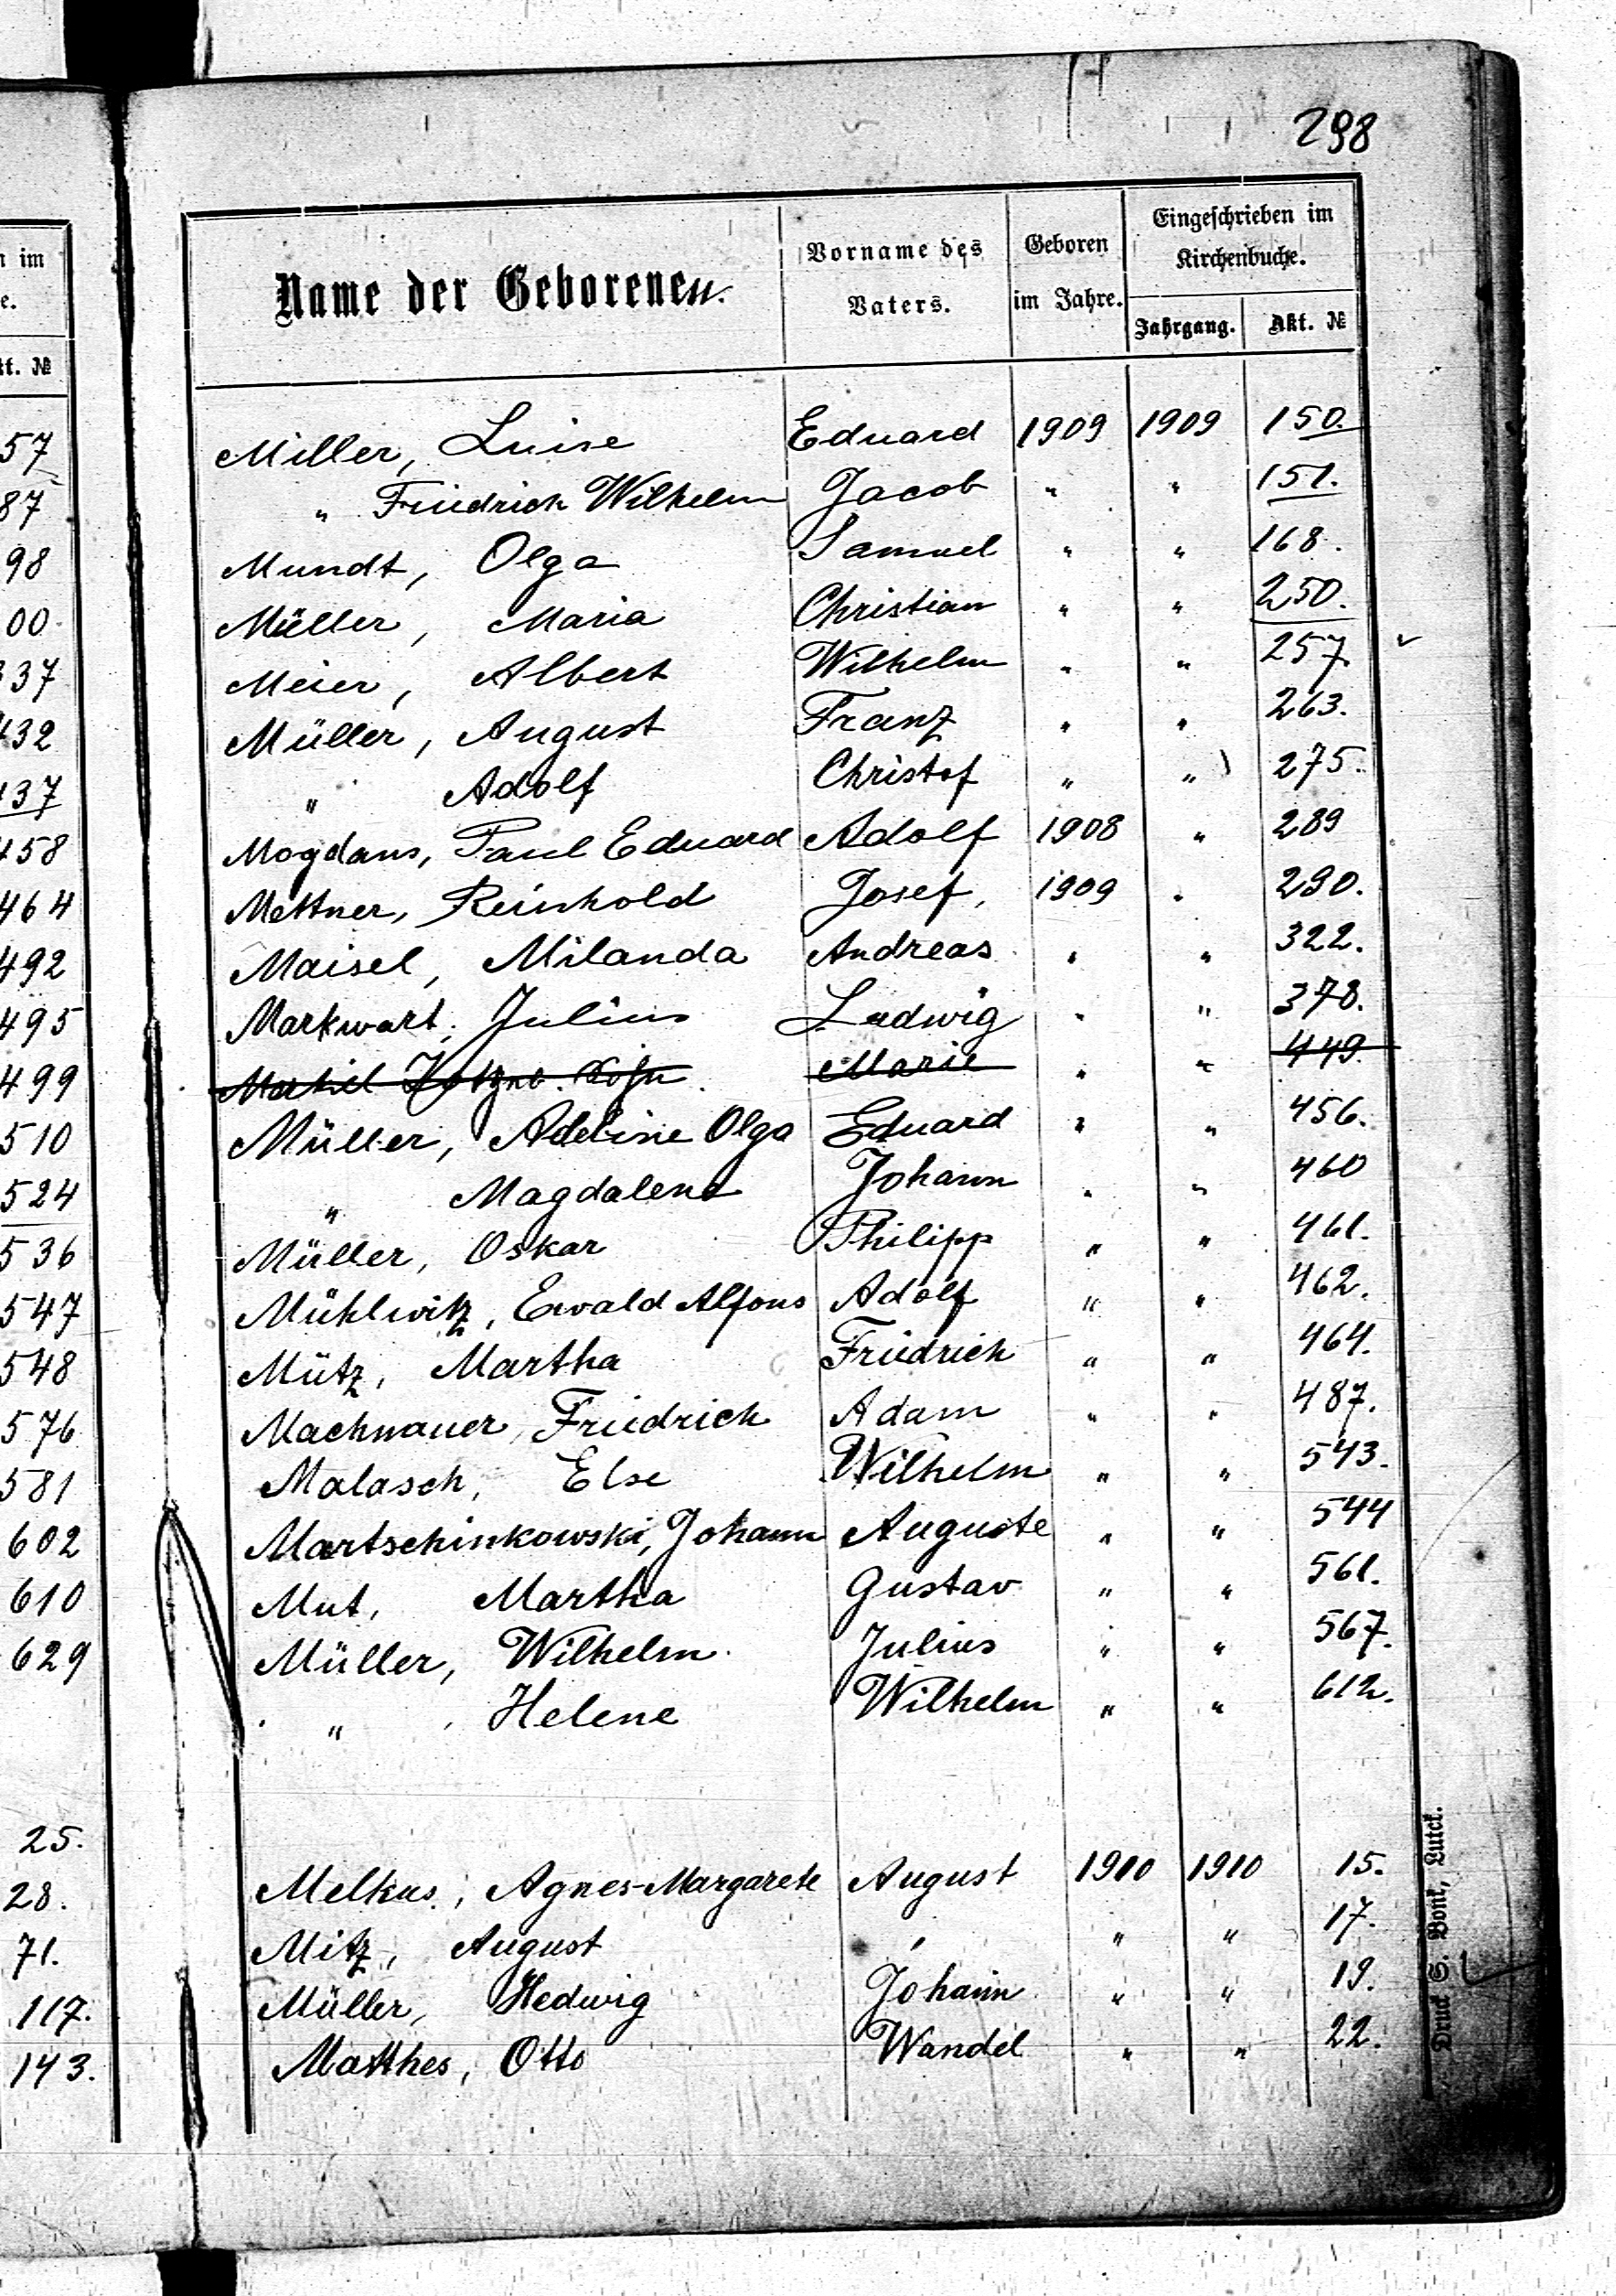 n im
e.
kt. №
57
87
98
00
37
432
437
458
464
492
495
499
510
524
536
547
548
576
581
602
610
629
25.
28.
71.
117.
143.
298
Name der Geborenen.
Vorname des Vaters.
Geboren im Jahre.
Eingeschrieben im Kirchenbuche.
Jahrgang. Akt. №
Miller, Luise Eduard 1909 1909 150.
" Friedrich Wilhelm Jacob " " 151.
Mundt, Olga Samuel " " 168.
Müller, Maria Christian " " 250.
Meier, Albert Wilhelm " " 257.
Müller, August Franz " " 263.
" Adolf Christof " " 275.
Mogdans, Paul Eduard Adolf 1908 " 289
Mettner, Reinhold Josef, 1909 " 290.
Maisel, Milanda Andreas " " 322.
Markwart, Julius Ludwig " " 378.
Marie " " 449.
Müller, Adeline Olga Eduard " " 456.
" Magdalena Johann " " 460
Müller, Oskar Philipp " " 461.
Mühlwitz, Ewald Alfons Adolf " " 462.
Mütz, Martha Friedrich " " 464.
Machnauer, Friedrich Adam " " 487.
Malasch, Else Wilhelm " " 543.
Martschinkowski, Johann Auguste " " 544
Mut, Martha Gustav " " 561.
Müller, Wilhelm Julius " " 567.
" Helene Wilhelm " " 612.
Melkus, Agnes-Margarete August 1910 1910 15.
Mitz, August " " " 17.
Müller, Hedwig Johann " " 19.
Matthes, Otto Wandel " " 22.
Druck S. Bonk, Luzk.